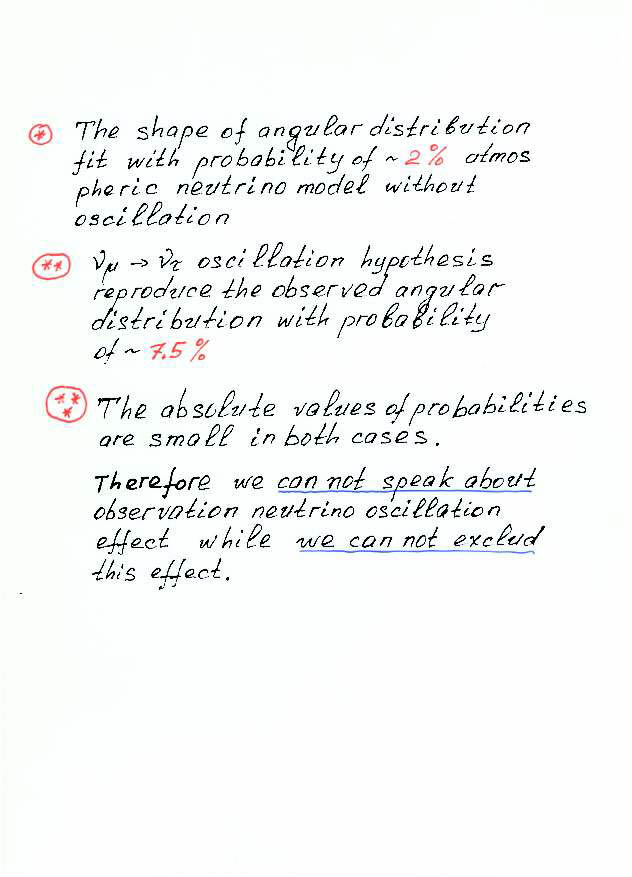 * The shape of angular distribution
fit with probability of ~ 2% atmos
pheric neutrino model without
oscillation
** νμ → ντ oscillation hypothesis
reproduce the observed angular
distribution with probability
of ~ 7.5%
*** The absolute values of probabilities
are small in both cases.
Therefore we can not speak about
observation neutrino oscillation
effect while we can not exclud
this effect.